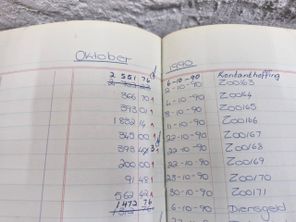 Oktober 1990
2 551 76 6-10-90 Kontantheffing
12-10-90 Z00163
366 70 -10-90 Z00164
393 01 8-10-90 Z00165
1 852 14 11-10-90 Z00166
345 00 22-10-90 Z00167
393 22-10-90 Z00168
200 00 22-10-90 Z00169
91 48 23-10-90 Z00170
562 42 30-10-90 Z00171
1 472 76 -10-90 Diensgeld